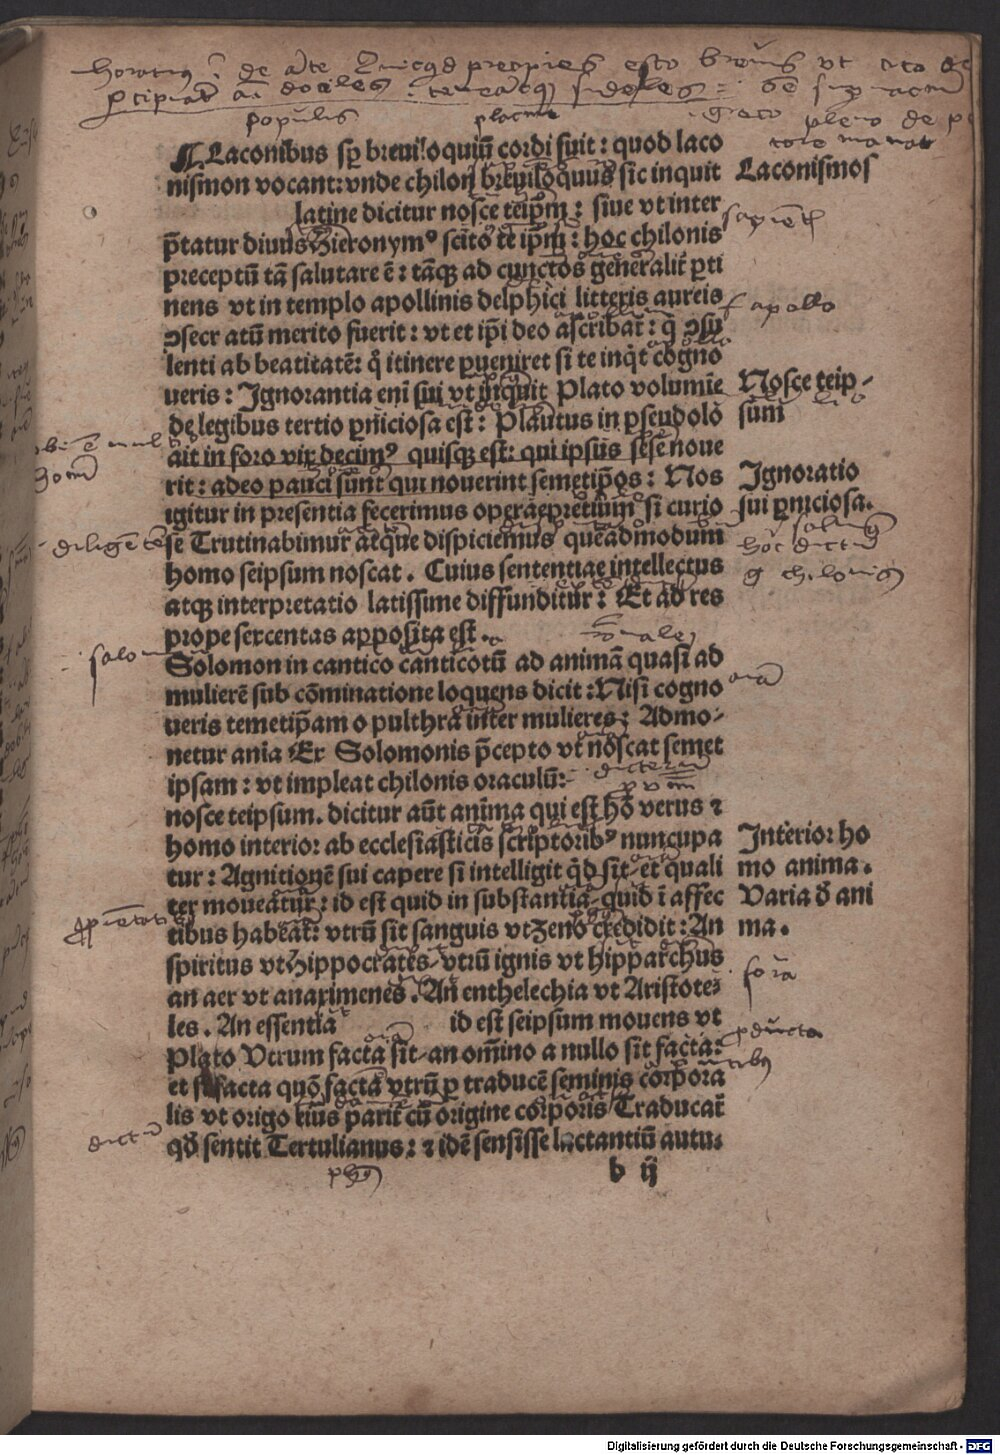 horatius de arte Quicqd precipies esto brevis vt cito
pcipiat ai dociles teneatq fideles
populis placuit
¶ Laconibus sp breuiloquiū cordi fuit : quod laco
nismon vocant: vnde chilon breuiloquus sic inquit
Laconismos
latine dicitur nosce teip̄m : siue vt inter
p̄tatur diuus Hieronymꝰ scito te ip̄m : hoc chilonis
preceptū tā salutare ē : tāqꝫ ad cunctos generalit̄ ꝑti
nens vt in templo apollinis delphici litteris aureis
apollo
ↄsecratū merito fuerit : vt et ip̄i deo ascribat̄ : q̄ ↄsu
lenti ab beatitatē: q̊ itinere ꝑueniret si te inq̇t cogno
ueris : Ignorantia eni sui vt inquit Plato volumie
Nosce teip-
sum
de legibus tertio ꝑniciosa est : Plautus in pseudolo
ait in foro vix decimꝰ quisqꝫ est: qui ipsus sese noue
rit : adeo pauci sunt qui nouerint semetip̄os : Nos
Ignoratio
sui ꝑniciosa.
igitur in presentia fecerimus operaepretium si curio
se Trutinabimur atque dispiciemus queadmodum
diligēte
hoc dictū
chilonis
homo seipsum noscat . Cuius sententiae intellectus
atqꝫ interpretatio latissime diffunditur : Et ad res
prope sexcentas apposita est.
Solomon in cantico canticotū ad animā quasi ad
mulierē sub cōminatione loquens dicit : Nisi cogno
ueris temetip̄am o pulthra inter mulieres : Admo-
netur ania Ex Solomonis p̄cepto vt noscat semet
ipsam : vt impleat chilonis oraculū:
nosce teipsum. dicitur aūt anima qui est hō verus ⁊
homo interior ab ecclesiasticis scriptoribꝰ nuncupa
Interior ho
mo anima.
tur : Agnitionē sui capere si intelligit q̊d sit et quali
ter moueatur : id est quid in substantia quid ī affec
Varia d̄ ani
ma.
tibus habeat: vtrū sit sanguis vt Zeno credidit : An
spiritus vt Hippocrates vtrū ignis vt hipparchus
an aer vt anaximenes . An enthelechia vt Aristote-
les . An essentia id est seipsum mouens vt
Plato Vtrum facta sit an om̄ino a nullo sit facta:
et si facta quō facta vtrū ꝑ traducē seminis corpora
lis vt origo eius parit̄ cū origine corporis Traducat̄
dictū
qd̄ sentit Tertulianus : ⁊ idē sensisse lactantiū autu-
b ij
Digitalisierung gefördert durch die Deutsche Forschungsgemeinschaft - DFG